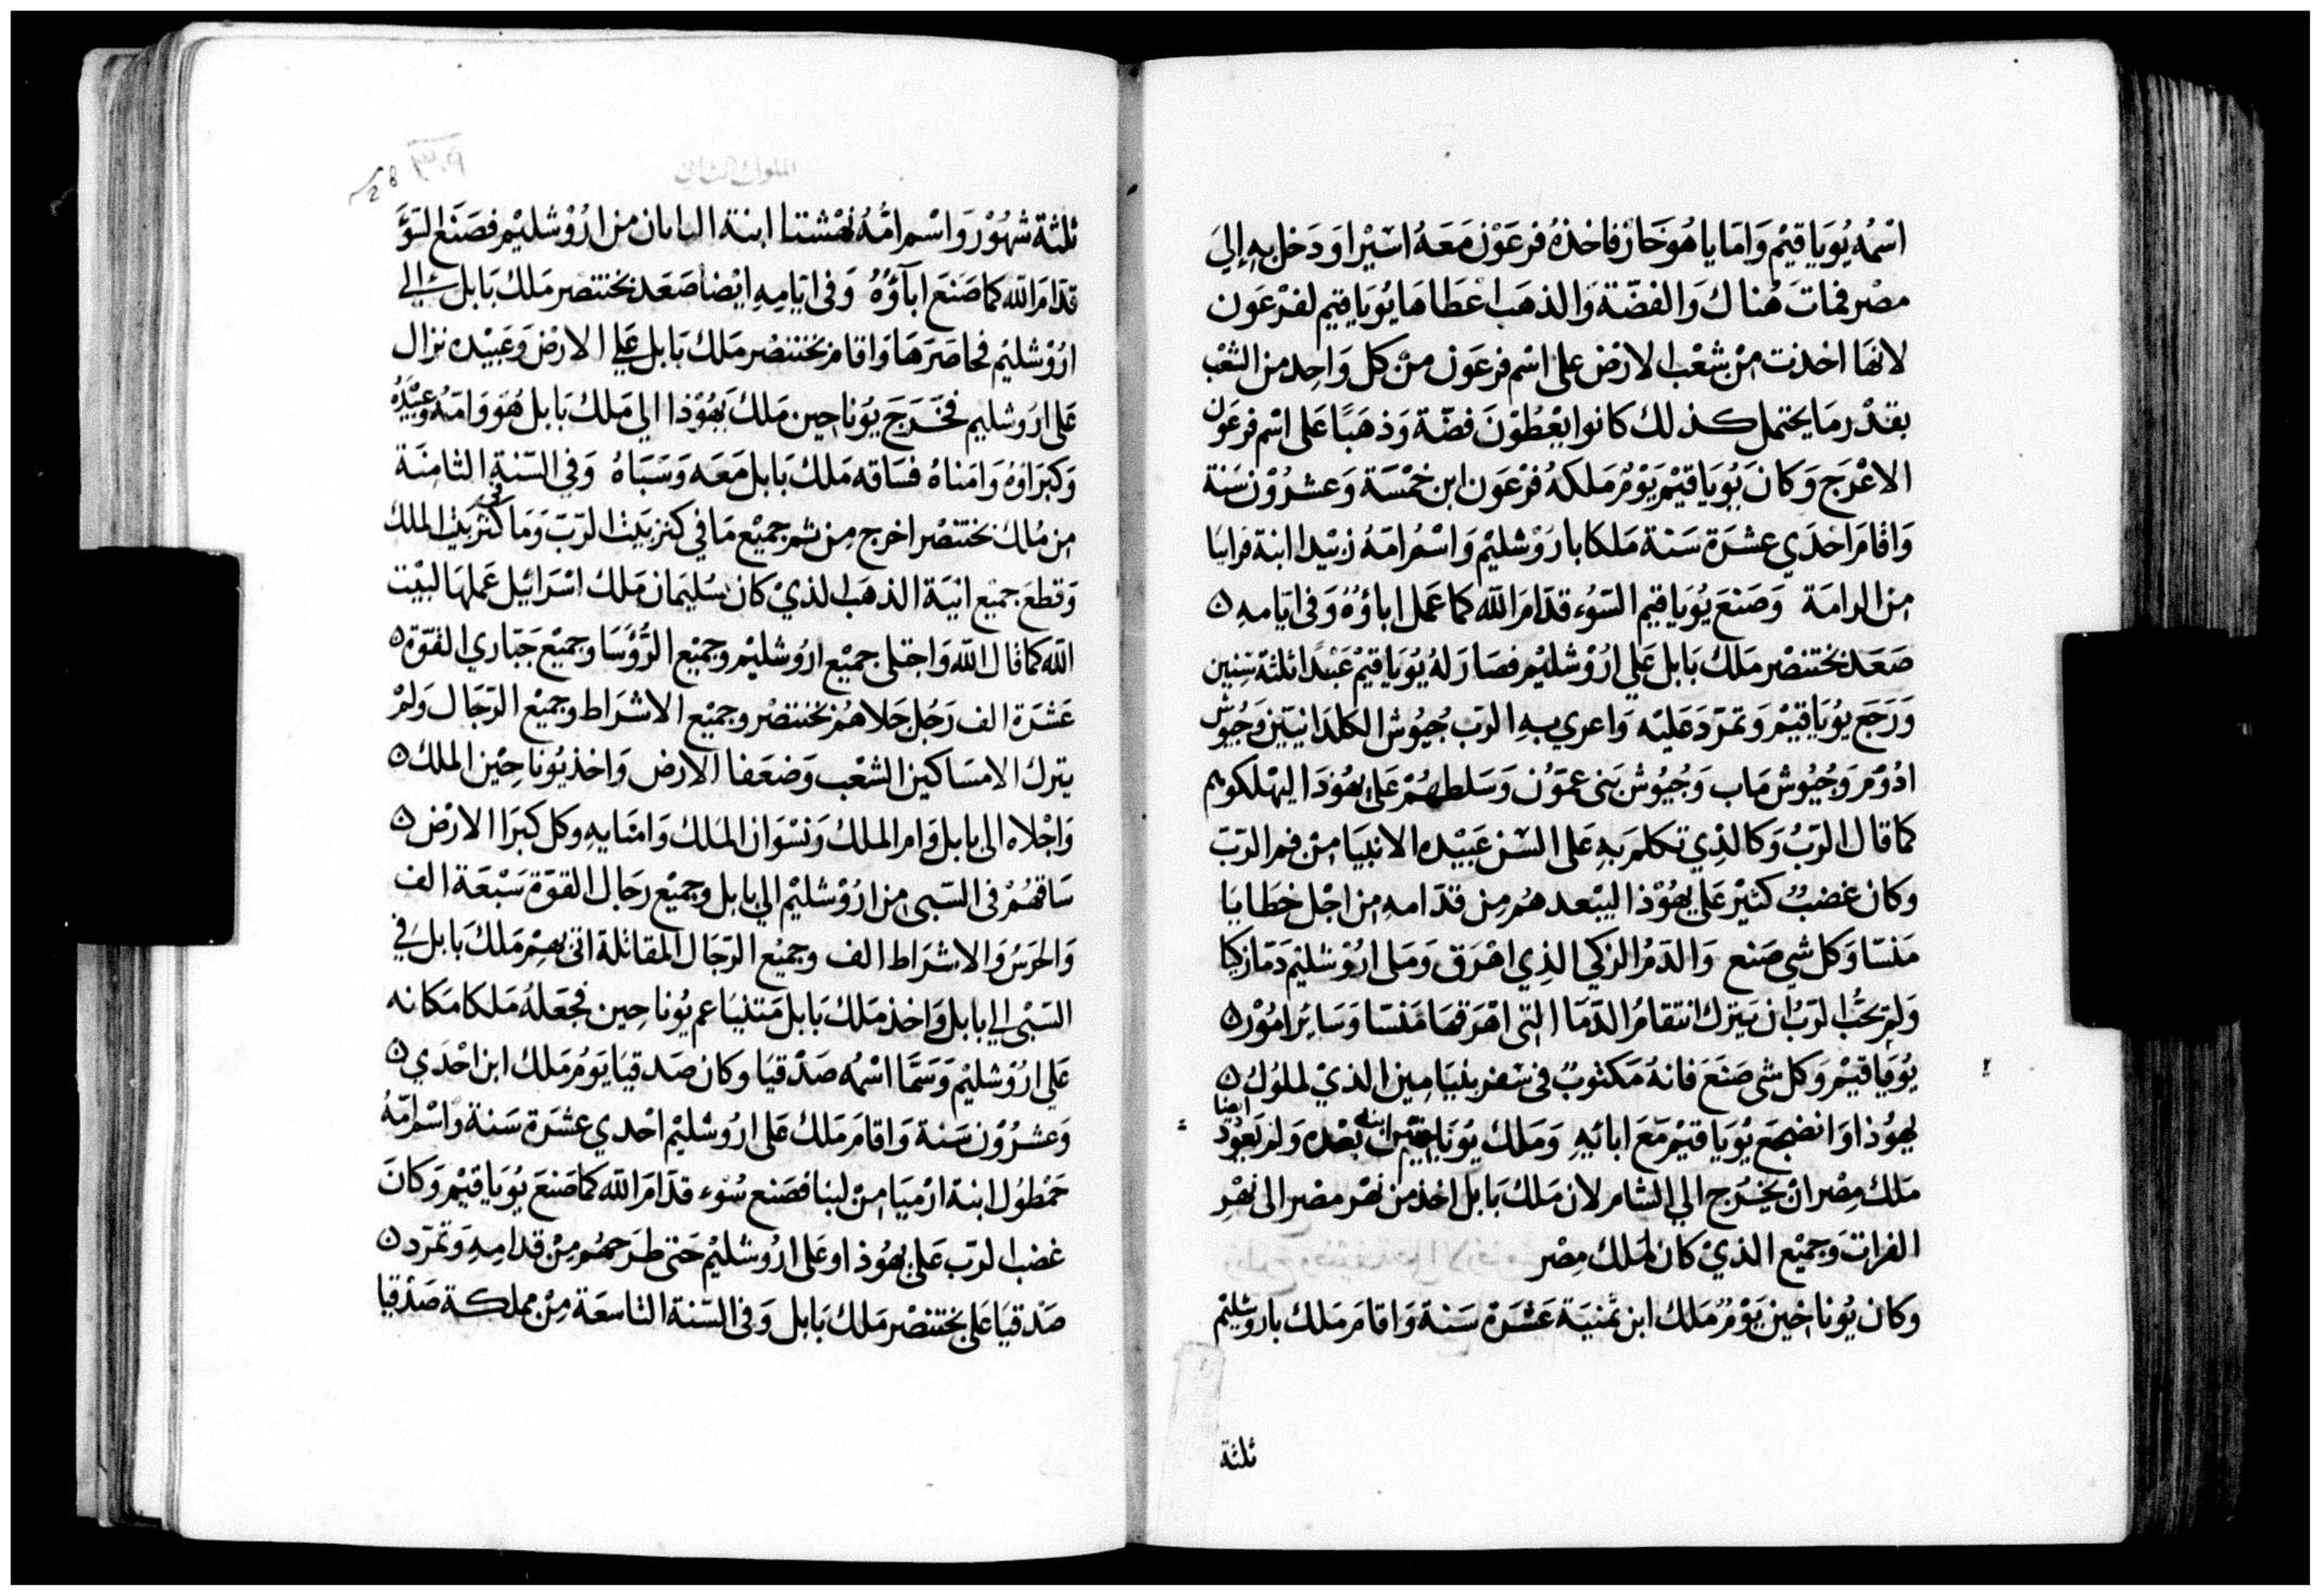 اسْمُه يُوَياقيْم وَامّا ياهُوحَاز فاخذهُ فرعَوْن مَعَهُ اسَيْرا وَدَخل بهِ إليَ
مصْر فماتَ هُناك وَالفضّة وَالذهَب اعْطاهَا يُوَياقيم لفرْعَون
لانهَا اخذت مِنْ شعْب الارْض على اسْم فرعَون منْ كل وَاحِد من الشعْب
بقدْر مَا يحتمل كذلك كانوا يُعْطوْنَ فضّة وَذهَبًا عَلى اسْم فرعَون
الاعْرَج وَكانَ يُوَياقيْم يَوْمَ مَلكهُ فرْعَون ابن خمْسَة وَعشرُوْن سَنة
وَاقامَ احْدَي عشرَة سَنة مَلكا باروْشليْم وَاسْم امّهُ زبيْدا ابنة فرايَا
مِن الرامَة وَصَنعَ يُوَياقيم السّوُء قدّامَ اللّه كما عَمل اباؤُهُ وَفى ايّامهِ ن
صَعَد بختنصْر مَلكُ بَابل عَلي ارُوْشليْم فصَارَ لهُ يُوَياقيْم عَبْدًا ثلثة سِنين
وَرَجَع يوُيَاقيْم وَتمرّدَ عَليْه وَاعري بهِ الرَب جُيُوش الكلدَانيّين وَجيُوش
ادُوْم وَجُيُوش مَاب وَجُيوُش بَنى عمّوْن وَسَلطهُمْ عَلى يهُوْدَا ليهْلكوهم
كما قال الرّبُ وَكالذِي تكلم بهِ عَلى السْن عَبيْده الانبيَا مِنْ فم الرّبّ
وكان غضبٌ كثيْر عَلى يهُوْذا ليبْعدهُم مِن قدّامهِ مِن اجْل خطايَا
مَنسّا وَكل شي صَنع وَالدَمُ الزكي الذِي اهْرَق وَمَلى ارُوْشليْم دَمًا زكيا
وَلم يحَبّ الرّبُ ان يَتركَ انتقامُ الدّمَا التى اهْرَقهَا مَنسّا وَسَائر امُوْر ن
يُوَياقيْم وَكل شى صَنعَ فانهُ مَكتوبٌ فى سفر بنيَامين الذيْ لملوُك ن
يهوُذا وَانضجَع يُوَياقيْم مَعَ ابائهِ وَمَلك يُونَاحِيْن ابنه بعْده وَلم يَعوُد ايضا
مَلك مِصْر انْ يخرُج الي الشام لان مَلك بَابل اخذ من نهْر مصْر الى نهْر
الفرات وَجميْع الذيْ كان لمَلك مِصْر
وكان يُوناخين يَوْم مَلك ابن ثمنيَة عَشرَة سَنة وَاقامَ مَلك باروشليْم
ثلثة
الملوك الثاني
ثلثة شهُوْر وَاسْم امّهُ ابنة من ارُوْشليْم فصَنع السّوَّ
قدّامَ اللّه كما صَنعَ اباَؤُهُ وَفى ايّامِهِ ايْضا صَعَد بختنصر مَلك بَابل الى
ارُوْشليْم فحاصَرَهَا وَاقامَ بختنصْر مَلك بَابل عَلي الارْض وَعَبيْده نزال
عَلى ارُوشليم فخَرَجَ يوُناحين مَلكُ يَهُوْذا الي مَلك بَابل هُوَ وَامّهُ وعَبيْدهُ
وَكبرَاؤهُ وَامَناهُ فسَاقه مَلك بَابل مَعَه وَسَبَاهُ وَفي السّنة الثامنَة
مِن مُلك بختنصْر اخرج مِن ثم جميْع مَا في كنز بَيْت الرّبّ وَمَا في كنز بَيْت الملك
وَقطعَ جميْع انيَة الذهَب الذيْ كان سُليمَان مَلك اسْرَائيل عَملهَا لبيْت
اللّه كما قال اللّه وَاجتلى جميْع ارُوشليْم وجميْع الرّؤُسَا وجميْع جَبّاري القوّة ن
عَشرَة الف رَجُل جَلاهُم بختنصْر وجميْع الاشرَاط وجميْع الرّجَال وَلمْ
يترك الا مسَاكين الشعْب وَضعَفا الارض وَاخذ يُوناحِيْن الملك ن
وَاجْلاه الى بابل وَام الملك وَنسْوَان المَلك وَامنايهِ وكل كبرَا الارْض ن
سَاقهُمْ فى السّبى مِن ارُوْشليْم الي بابل وجميْع رجَال القوّة سَبْعَة الف
وَالحرَسُ وَالاشرَاط الف وجميْع الرّجَال المقاتلة اتى بهمْ مَلك بَابل في
السّبْى الي بابل وَاخذ مَلك بَابل مَتنيَا عم يُوناحين فجعَلهُ مَلكا مَكانه
عَلي ارُوْشليْم وَسَمّا اسْمُه صَدْقيَا وكان صَدقيَا يَوْمَ مَلك ابن احْدَي ن
وَعشرُوْن سَنة وَاقامَ مَلك عَلى ارُوشليْم احْدي عشرَة سَنة وَاسْم امّهُ
حَمْطوُل ابنة ارْميَا مِنْ لبنا فصَنع سُوْء قدّامَ اللّه كما صَنعَ يُوَياقيْم وَكانَ
غضب الرّب عَلى يهُوذا وعَلى ارُوشليْم حَتى طرَحهُم مِنْ قدّامِهِ وَتمرّد ن
صَدْقيَا عَلى بختنصْر مَلك بَابل وَفى السّنة التاسعَة مِنْ مملكة صَدْقيا